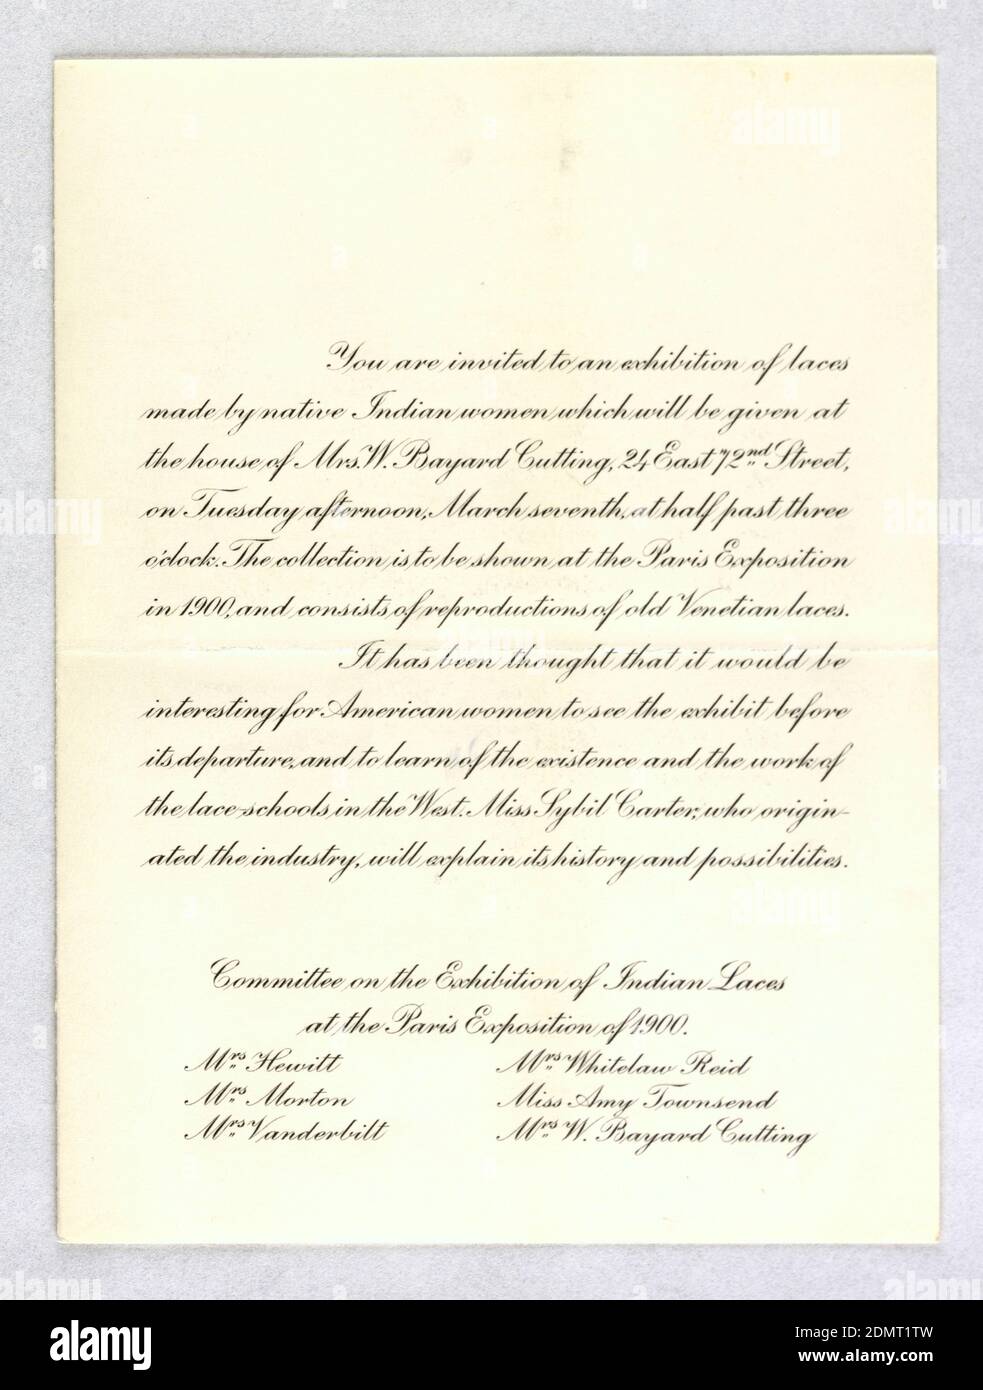 You are invited to an exhibition of laces
made by native Indian women which will be given at
the house of Mrs. W. Bayard Cutting, 24 East 72nd Street,
on Tuesday afternoon, March seventh, at half past three
o'clock. The collection is to be shown at the Paris Exposition
in 1900, and consists of reproductions of old Venetian laces.
It has been thought that it would be
interesting for American women to see the exhibit before
its departure, and to learn of the existence and the work of
the lace-schools in the West. Miss Sybil Carter, who origin-
ated the industry, will explain its history and possibilities.
Committee on the Exhibition of Indian Laces
at the Paris Exposition of 1900.
Mrs Hewitt
Mrs Morton
Mrs Vanderbilt
Mrs Whitelaw Reid
Miss Amy Townsend
Mrs W. Bayard Cutting
alamy
Image ID: 2DMT1TW
www.alamy.com